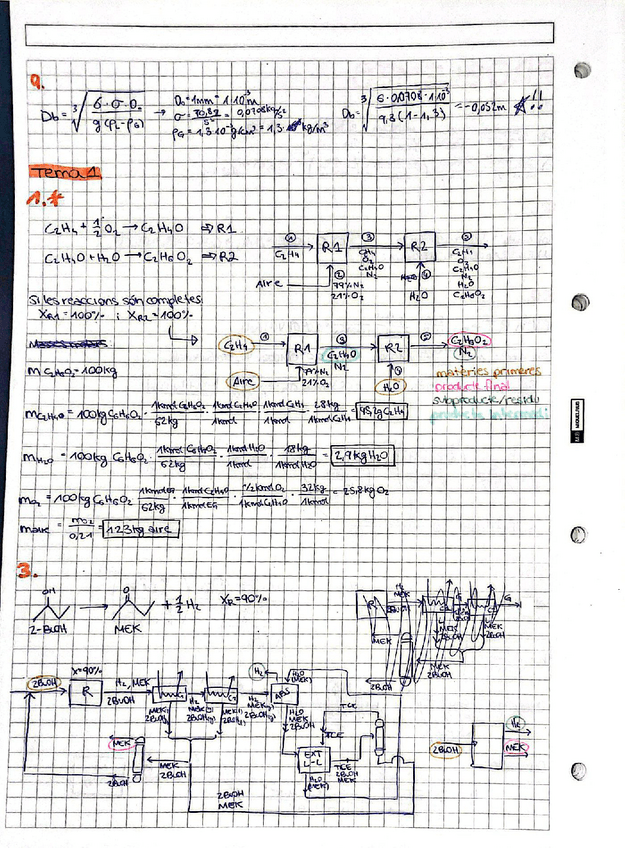 9.
Db = ∛(6·σ·D₀ / g(ρL-ρG)) → D₀ = 1mm = 1·10⁻³m
σ = 70,82/S² = 0,0708kg/s²
ρG = 1,3·10⁻³g/cm³ = 1,3 kg/m³
Db = ∛(6·0,0708·1·10⁻³ / 9,8(1-1,3)) = -0,052m !!
Tema 1
1.*
C₂H₄ + 1/2 O₂ → C₂H₄O ⇒ R1
C₂H₄O + H₂O → C₂H₆O₂ ⇒ R2
① C₂H₄ R1 ③ C₂H₄ O₂ C₂H₄O N₂ R2 ⑤ C₂H₄ O₂ C₂H₄O N₂ H₂O C₂H₆O₂
Aire ② 79%N₂ 21%O₂ ④ H₂O
Si les reaccions són completes
XR1 = 100% i XR2 = 100%
C₂H₄ ① R1 ③ C₂H₄O N₂ R2 ⑤ C₂H₆O₂ N₂
Aire 79%N₂ 21%O₂ H₂O
matèries primeres
producte final
subproducte/residu
m C₂H₆O₂ = 100kg
1kmol C₂H₆O₂/62kg · 1kmol C₂H₄O/1kmol · 1kmol C₂H₄/1kmol C₂H₄O · 28kg/1kmol = 45,2kg C₂H₄
mH₂O = 100kg C₂H₆O₂ · 1kmol C₂H₆O₂/62kg · 1kmol H₂O/1kmol · 18kg/1kmol H₂O = 2,9kg H₂O
mO₂ = 100kg C₂H₆O₂ · 1kmol EG/62kg · 1kmol C₂H₄O/1kmol EG · 1/2kmol O₂/1kmol C₂H₄O · 32kg/1kmol = 25,8kg O₂
maire = mO₂/0,21 = 123kg aire
3.
OH O
→ + 1/2 H₂ XR = 90%
2-BuOH MEK
X=90%
2BuOH R H₂, MEK 2BuOH
H₂ H₂O (MEK)
ABS
H₂O MEK 2BuOH
TCE
EXT L-L
TCE 2BuOH MEK
H₂O (MEK)
MEK
2BuOH
MEK 2BuOH
2BuOH MEK
2BuOH H₂ MEK
MIQUELRIUS